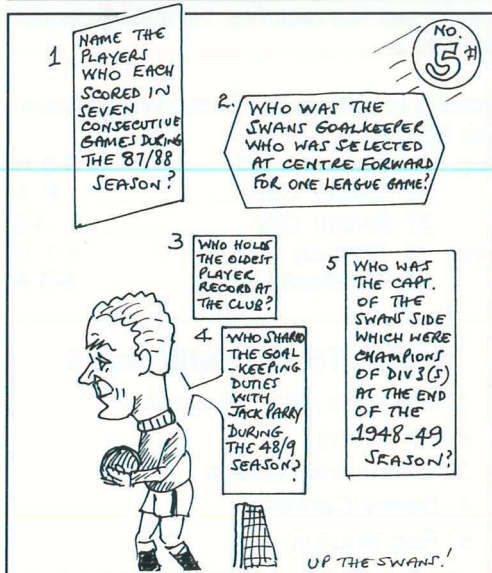 NO.
5
1
NAME THE
PLAYERS
WHO EACH
SCORED IN
SEVEN
CONSECUTIVE
GAMES DURING
THE 87/88
SEASON?
2.
WHO WAS THE
SWANS GOALKEEPER
WHO WAS SELECTED
AT CENTRE FORWARD
FOR ONE LEAGUE GAME?
3
WHO HOLDS
THE OLDEST
PLAYER
RECORD AT
THE CLUB?
4
WHO SHARED
THE GOAL
-KEEPING
DUTIES
WITH
JACK PARRY
DURING
THE 48/9
SEASON?
5
WHO WAS
THE CAPT.
OF THE
SWANS SIDE
WHICH WERE
CHAMPIONS
OF DIV 3(S)
AT THE END
OF THE
1948-49
SEASON?
UP THE SWANS!